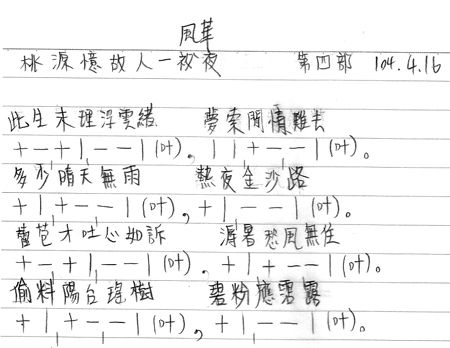 風華
桃源憶故人一初夜 第四部 104.4.16
此生未理浮雲緒 夢索閒情難去
+ − + | − − | (叶), | | + − − | (叶)。
多少晴天無雨 熱夜金沙路
+ | + − − | (叶), + | − − | (叶)。
苞才吐心如訴 溽暑風無住
+ − + | − − | (叶), + | + − − | (叶)。
偷料陽台瑤樹 碧粉應霑露
+ | + − − | (叶), + | − − | (叶)。